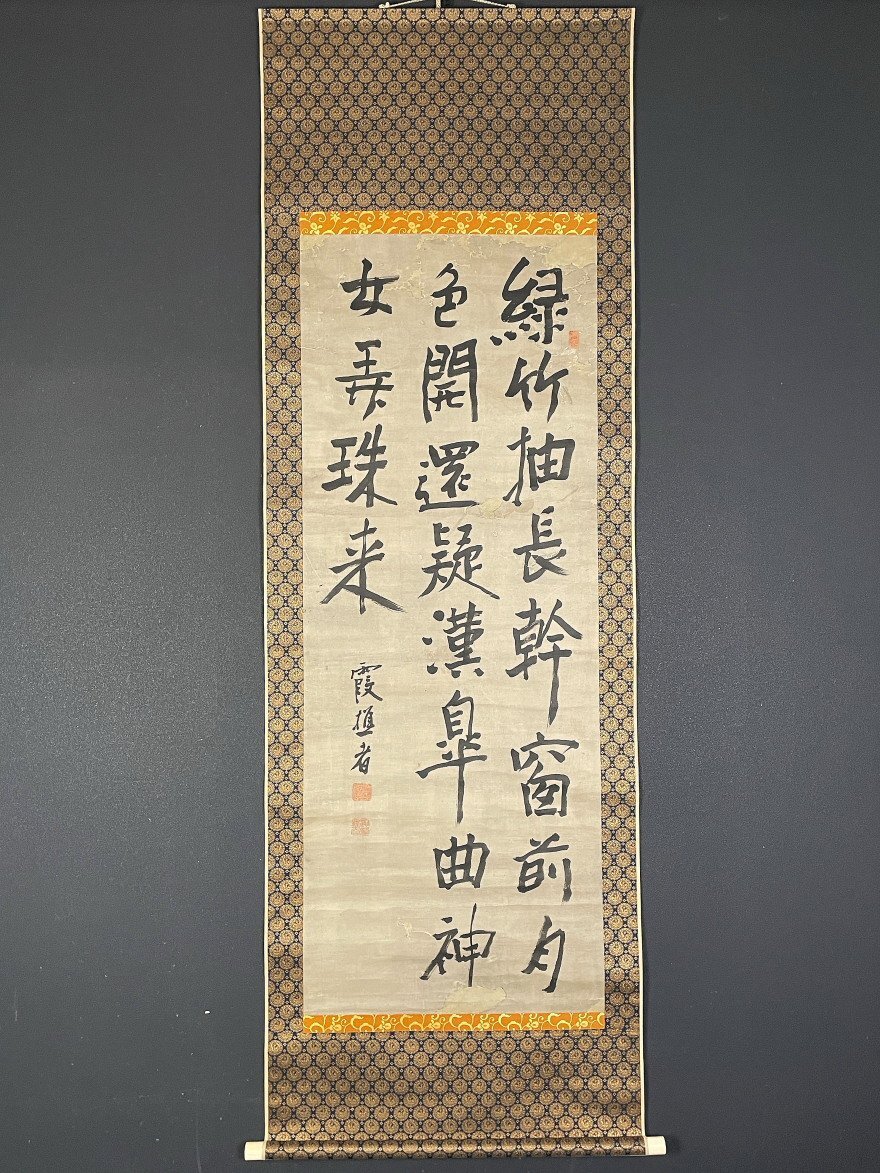 緑竹抽長幹窗前月
色開還疑漢皐曲神
女弄珠来
霞樵者